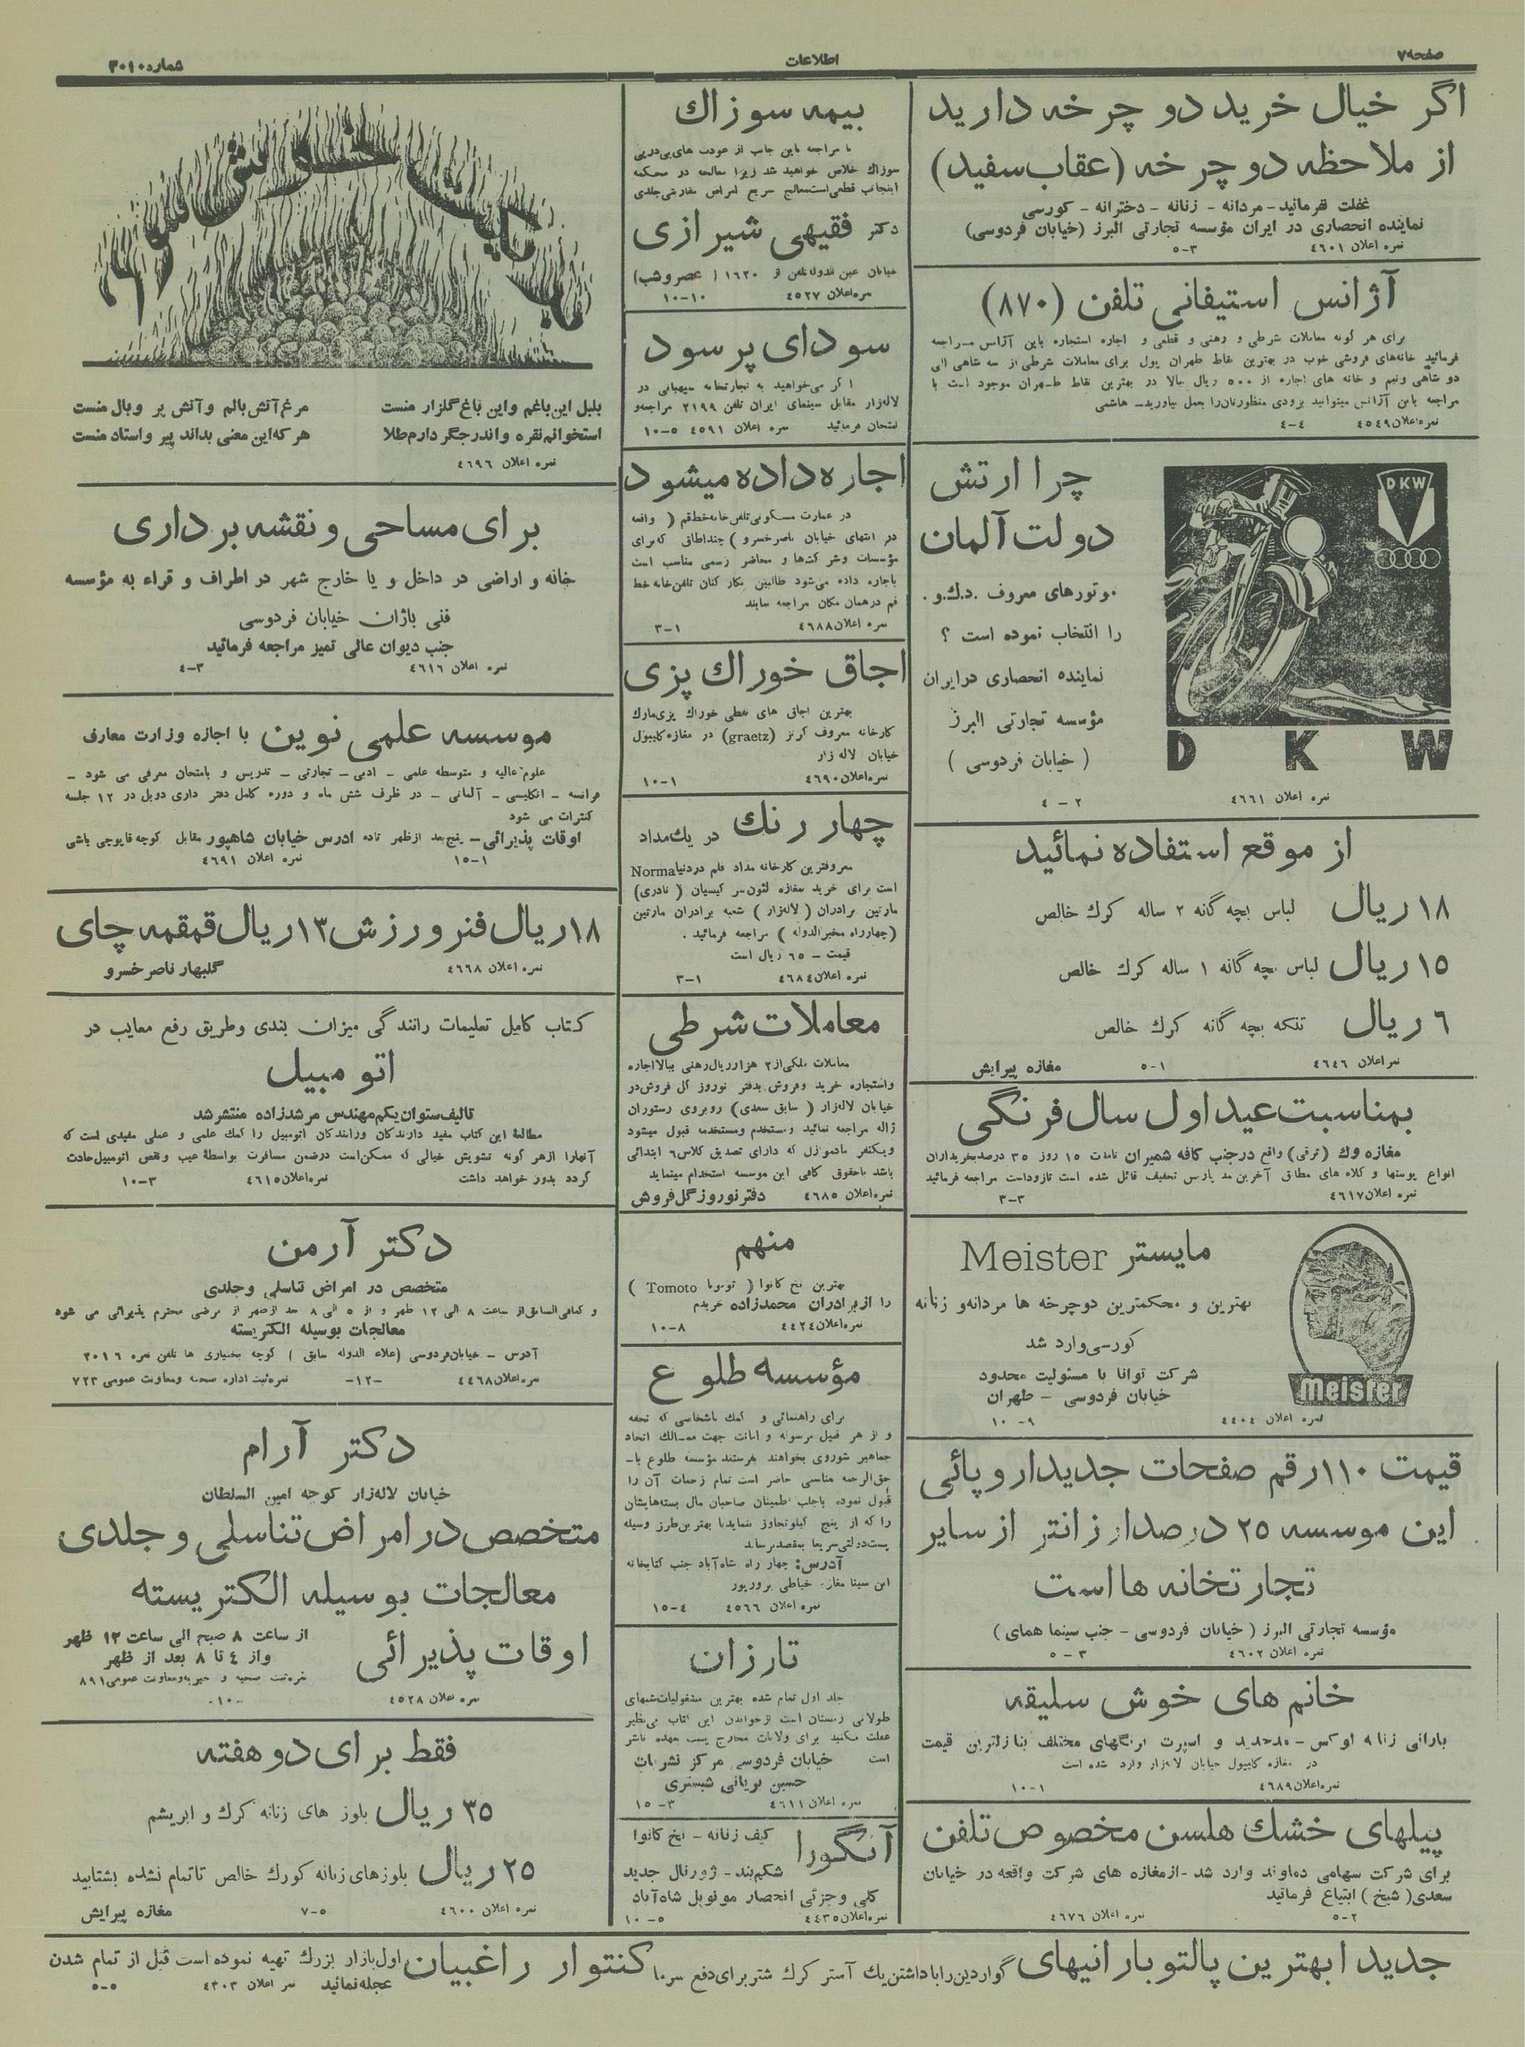 صفحه ۷
اطلاعات
شماره ۳۰۱۰
اگر خیال خرید دو چرخه دارید
از ملاحظه دو چرخه (عقاب سفید)
غفلت نفرمائید - مردانه - زنانه - دخترانه - کورسی
نماینده انحصاری در ایران مؤسسه تجارتی البرز (خیابان فردوسی)
نمره اعلان ۴۶۰۱ ۳-۵
آژانس استیفانی تلفن (۸۷۰)
برای هر گونه معاملات شرطی و رهنی و قطعی و اجاره استجاره باین آژانس مراجعه
فرمائید خانه‌های فروشی خوب در بهترین نقاط طهران پول برای معاملات شرطی از سه شاهی الی
دو شاهی ونیم و خانه های اجاره از ۵۰۰ ریال ببالا در بهترین نقاط طهران موجود است با
مراجعه باین آژانس میتوانید بزودی منظورتان را بعمل بیاورید - هاشمی
نمره اعلان ۴۵۴۹ ۴-۴
چرا ارتش
دولت آلمان
موتورهای معروف د.ک.و.
را انتخاب نموده است ؟
نماینده انحصاری در ایران
مؤسسه تجارتی البرز
( خیابان فردوسی )
DKW
D K W
نمره اعلان ۴۶۶۱ ۲-۴
از موقع استفاده نمائید
۱۸ ریال لباس بچه گانه ۲ ساله کرک خالص
۱۵ ریال لباس بچه گانه ۱ ساله کرک خالص
۶ ریال تنکه بچه گانه کرک خالص
نمره اعلان ۴۶۴۶ ۱-۵ مغازه پیرایش
بمناسبت عید اول سال فرنگی
مغازه وک (ترقی) واقع در جنب کافه شمیران تامدت ۱۵ روز ۳۵ درصد بخریداران
انواع پوستها و کلاه های مطابق آخرین مد پاریس تخفیف قائل شده است تا زود است مراجعه فرمائید
نمره اعلان ۴۶۱۷ ۳-۳
مایستر Meister
بهترین و محکمترین دوچرخه ها مردانه و زنانه
کورسی وارد شد
شرکت توانا با مسئولیت محدود
خیابان فردوسی - طهران
meister
نمره اعلان ۴۴۰۴ ۹-۱۰
قیمت ۱۱۰ رقم صفحات جدید اروپائی
این موسسه ۲۵ درصد ارزانتر از سایر
تجارتخانه ها است
مؤسسه تجارتی البرز ( خیابان فردوسی - جنب سینما همای )
نمره اعلان ۴۶۰۲ ۳-۵
خانم های خوش سلیقه
بارانی زنانه لوکس - مد جدید و اسپرت برنگهای مختلف بنازلترین قیمت
در مغازه کاپیتول خیابان لاله‌زار وارد شده است
نمره اعلان ۴۶۸۹ ۱-۱۰
پیلهای خشک هلسن مخصوص تلفن
برای شرکت سهامی دماوند وارد شد - از مغازه های شرکت واقعه در خیابان
سعدی ( شیخ ) ابتیاع فرمائید
نمره اعلان ۴۶۷۶ ۲-۵
بیمه سوزاک
با مراجعه باین جانب از عودت های پی‌درپی
سوزاک خلاص خواهید شد زیرا معالجه در محکمه
اینجانب قطعی است معالج سریع امراض مقاربتی جلدی
دکتر فقیهی شیرازی
خیابان عین الدوله تلفن نمره ۱۶۲۰ ( عصر و شب)
نمره اعلان ۴۵۲۷ ۱۰-۱۰
سودای پر سود
اگر می‌خواهید به تجارتخانه سپهبانی در
لاله‌زار مقابل سینمای ایران تلفن ۲۱۹۹ مراجعه و
امتحان فرمائید نمره اعلان ۴۵۹۱ ۵-۱۰
اجاره داده میشود
در عمارت مسکونی تلفن خانه خط قم ( واقعه
در انتهای خیابان ناصر خسرو ) چند اطاق که برای
مؤسسات و شرکت‌ها و محاضر رسمی مناسب است
باجاره داده می‌شود طالبین بکارکنان تلفن خانه خط
قم در همان مکان مراجعه نمایند
نمره اعلان ۴۶۸۸ ۱-۳
اجاق خوراک پزی
بهترین اجاق های نفطی خوراک پزی مارک
کارخانه معروف گرتز (graetz) در مغازه کاپیتول
خیابان لاله زار
نمره اعلان ۴۶۹۰ ۱-۱۰
چهار رنگ در یک مداد
معروفترین کارخانه مداد قلم در دنیا Norma
است برای خرید بمغازه لئون سرکیسیان ( نادری)
مارتین برادران ( لاله‌زار ) شعبه برادران مارتین
(چهارراه مخبرالدوله ) مراجعه فرمائید .
قیمت - ۶۵ ریال است
نمره اعلان ۴۶۸۴ ۱-۳
معاملات شرطی
معاملات ملکی از ۲ هزار ریال رهنی ببالا اجاره
واستجاره خرید وفروش بدفتر نوروز گل فروش در
خیابان لاله‌زار ( سابق سعدی ) روبروی رستوران
ژاله مراجعه نمائید و مستخدم ومستخدمه قبول میشود
ویکنفر مادموازل که دارای تصدیق کلاس ۶ ابتدائی
باشد باحقوق کافی این موسسه استخدام مینماید
نمره اعلان ۴۶۸۵ دفتر نوروز گل فروش
منهم
بهترین نخ کانوا ( توموتا Tomoto )
را از برادران محمدزاده خریدم
نمره اعلان ۴۴۲۴ ۸-۱۰
مؤسسه طلوع
برای راهنمائی و کمک باشخاصی که تحفه
و از هر قبیل مرسوله و امانت جهت ممالک اتحاد
جماهیر شوروی بخواهند بفرستند مؤسسه طلوع با
حق‌الزحمه مناسبی حاضر است تمام زحمات آن را
قبول نموده باجلب اطمینان صاحبان مال بسته‌هایشان
را که از پنج کیلو تجاوز ننماید با بهترین طرز وسیله
پست دولتی سریعا بمقصد برساند
آدرس: چهار راه شاه‌آباد جنب کتابخانه
ابن سینا مغازه خیاطی پرورپور
نمره اعلان ۴۵۶۶ ۴-۱۵
تارزان
جلد اول تمام شده بهترین مشغولیات شبهای
طولانی زمستان است از خواندن این کتاب بی‌نظیر
غفلت نکنید برای ولایات مخارج پست بعهده ناشر
است خیابان فردوسی مرکز نشریات
حسین بریانی شبستری
نمره اعلان ۴۶۱۱ ۳-۱۵
آنگورا کیف زنانه - نخ کانوا
شکم‌بند - ژورنال جدید
کلی و جزئی انحصار مونوپل شاه‌آباد
نمره اعلان ۴۴۳۵ ۵-۱۰
باید خوش سوخت
بلبل این باغم و این باغ گلزار منست مرغ آتش بالم و آتش پر و بال منست
استخوانم نقره و اندر جگر دارم طلا هر که این معنی بداند پیر و استاد منست
نمره اعلان ۴۶۹۶
برای مساحی و نقشه برداری
خانه و اراضی در داخل و یا خارج شهر در اطراف و قراء به مؤسسه
فنی باژان خیابان فردوسی
جنب دیوان عالی تمیز مراجعه فرمائید
نمره اعلان ۴۶۱۶ ۳-۴
موسسه علمی نوین با اجازه وزارت معارف
علوم عالیه و متوسطه علمی - ادبی - تجارتی - تدریس و بامتحان معرفی می شود -
فرانسه - انگلیسی - آلمانی - در ظرف شش ماه و دوره کامل دفتر داری دوبل در ۱۲ جلسه
کنترات می شود
اوقات پذیرائی - پنج بعد از ظهر تاده ادرس خیابان شاهپور مقابل کوچه قاپوچی باشی
نمره اعلان ۴۶۹۱ ۱-۱۵
۱۸ ریال فنر ورزش ۱۳ ریال قمقمه چای
نمره اعلان ۴۶۶۸ گلبهار ناصر خسرو
کتاب کامل تعلیمات رانندگی میزان بندی وطریق رفع معایب در
اتومبیل
تالیف ستوان یکم مهندس مرشدزاده منتشر شد
مطالعۀ این کتاب مفید دارندگان ورانندگان اتومبیل را کمک علمی و عملی مفیدی است که
آنهارا از هر گونه تشویش خیالی که ممکن است در ضمن مسافرت بواسطۀ عیب و نقص اتومبیل حادث
گردد بدور خواهد داشت نمره اعلان ۴۶۱۵ ۳-۱۰
دکتر آرمن
متخصص در امراض تناسلی و جلدی
و کمافی السابق از ساعت ۸ الی ۱۲ ظهر و از ۵ الی ۸ بعد از ظهر از مرضی محترم پذیرائی می شود
معالجات بوسیله الکتریسته
آدرس - خیابان فردوسی (علاء الدوله سابق ) کوچه بختیاری ها تلفن نمره ۲۰۱۶
نمره اعلان ۴۴۶۸ -۱۲- نمره ثبت اداره صحیه ومعاونت عمومی ۷۲۳
دکتر آرام
خیابان لاله‌زار کوچه امین السلطان
متخصص در امراض تناسلی و جلدی
معالجات بوسیله الکتریسته
اوقات پذیرائی از ساعت ۸ صبح الی ساعت ۱۲ ظهر
و از ۴ تا ۸ بعد از ظهر
نمره ثبت صحیه و خیریه ومعاونت عمومی ۸۹۱
نمره اعلان ۴۵۲۸ -۱۰-
فقط برای دو هفته
۳۵ ریال بلوز های زنانه کرک و ابریشم
۲۵ ریال بلوزهای زنانه کورک خالص تا تمام نشده بشتابید
نمره اعلان ۴۶۰۰ ۵-۷ مغازه پیرایش
جدیدا بهترین پالتو بارانیهای گواردین را با داشتن یک آستر کرک شتر برای دفع سرما کنتوار راغبیان اول بازار بزرک تهیه نموده است قبل از تمام شدن
عجله نمائید نمره اعلان ۴۳۰۳ ۵-۵